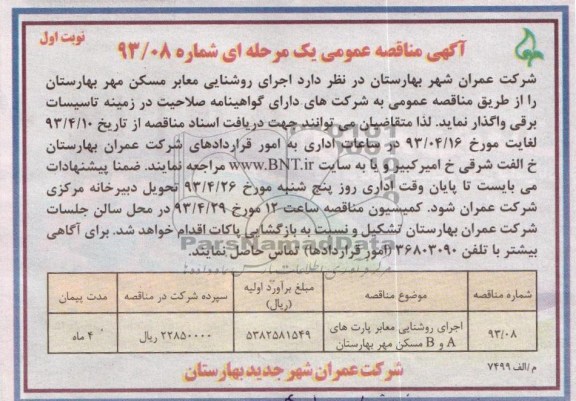 نوبت اول
آگهی مناقصه عمومی یک مرحله ای شماره ۹۳/۰۸
شرکت عمران شهر بهارستان در نظر دارد اجرای روشنایی معابر مسکن مهر بهارستان
را از طریق مناقصه عمومی به شرکت های دارای گواهینامه صلاحیت در زمینه تاسیسات
برقی واگذار نماید. لذا متقاضیان می توانند جهت دریافت اسناد مناقصه از تاریخ ۹۳/۴/۱۰
لغایت مورخ ۹۳/۰۴/۱۶ در ساعات اداری به امور قراردادهای شرکت عمران بهارستان
خ الفت شرقی خ امیرکبیر و یا به سایت www.BNT.ir مراجعه نمایند. ضمنا پیشنهادات
می بایست تا پایان وقت اداری روز پنج شنبه مورخ ۹۳/۴/۲۶ تحویل دبیرخانه مرکزی
شرکت عمران شود. کمیسیون مناقصه ساعت ۱۲ مورخ ۹۳/۴/۲۹ در محل سالن جلسات
شرکت عمران بهارستان تشکیل و نسبت به بازگشایی پاکات اقدام خواهد شد. برای آگاهی
بیشتر با تلفن ۳۶۸۰۳۰۹۰ (امور قراردادها) تماس حاصل نمایند.
ParsNamadData
شماره مناقصه موضوع مناقصه مبلغ برآورد اولیه (ریال) سپرده شرکت در مناقصه مدت پیمان
۹۳/۰۸ اجرای روشنایی معابر پارت های A و B مسکن مهر بهارستان ۵۳۸۲۵۸۱۵۴۹ ۲۲۸۵۰۰۰۰ ریال ۴ ماه
م/الف ۷۴۹۹
شرکت عمران شهر جدید بهارستان